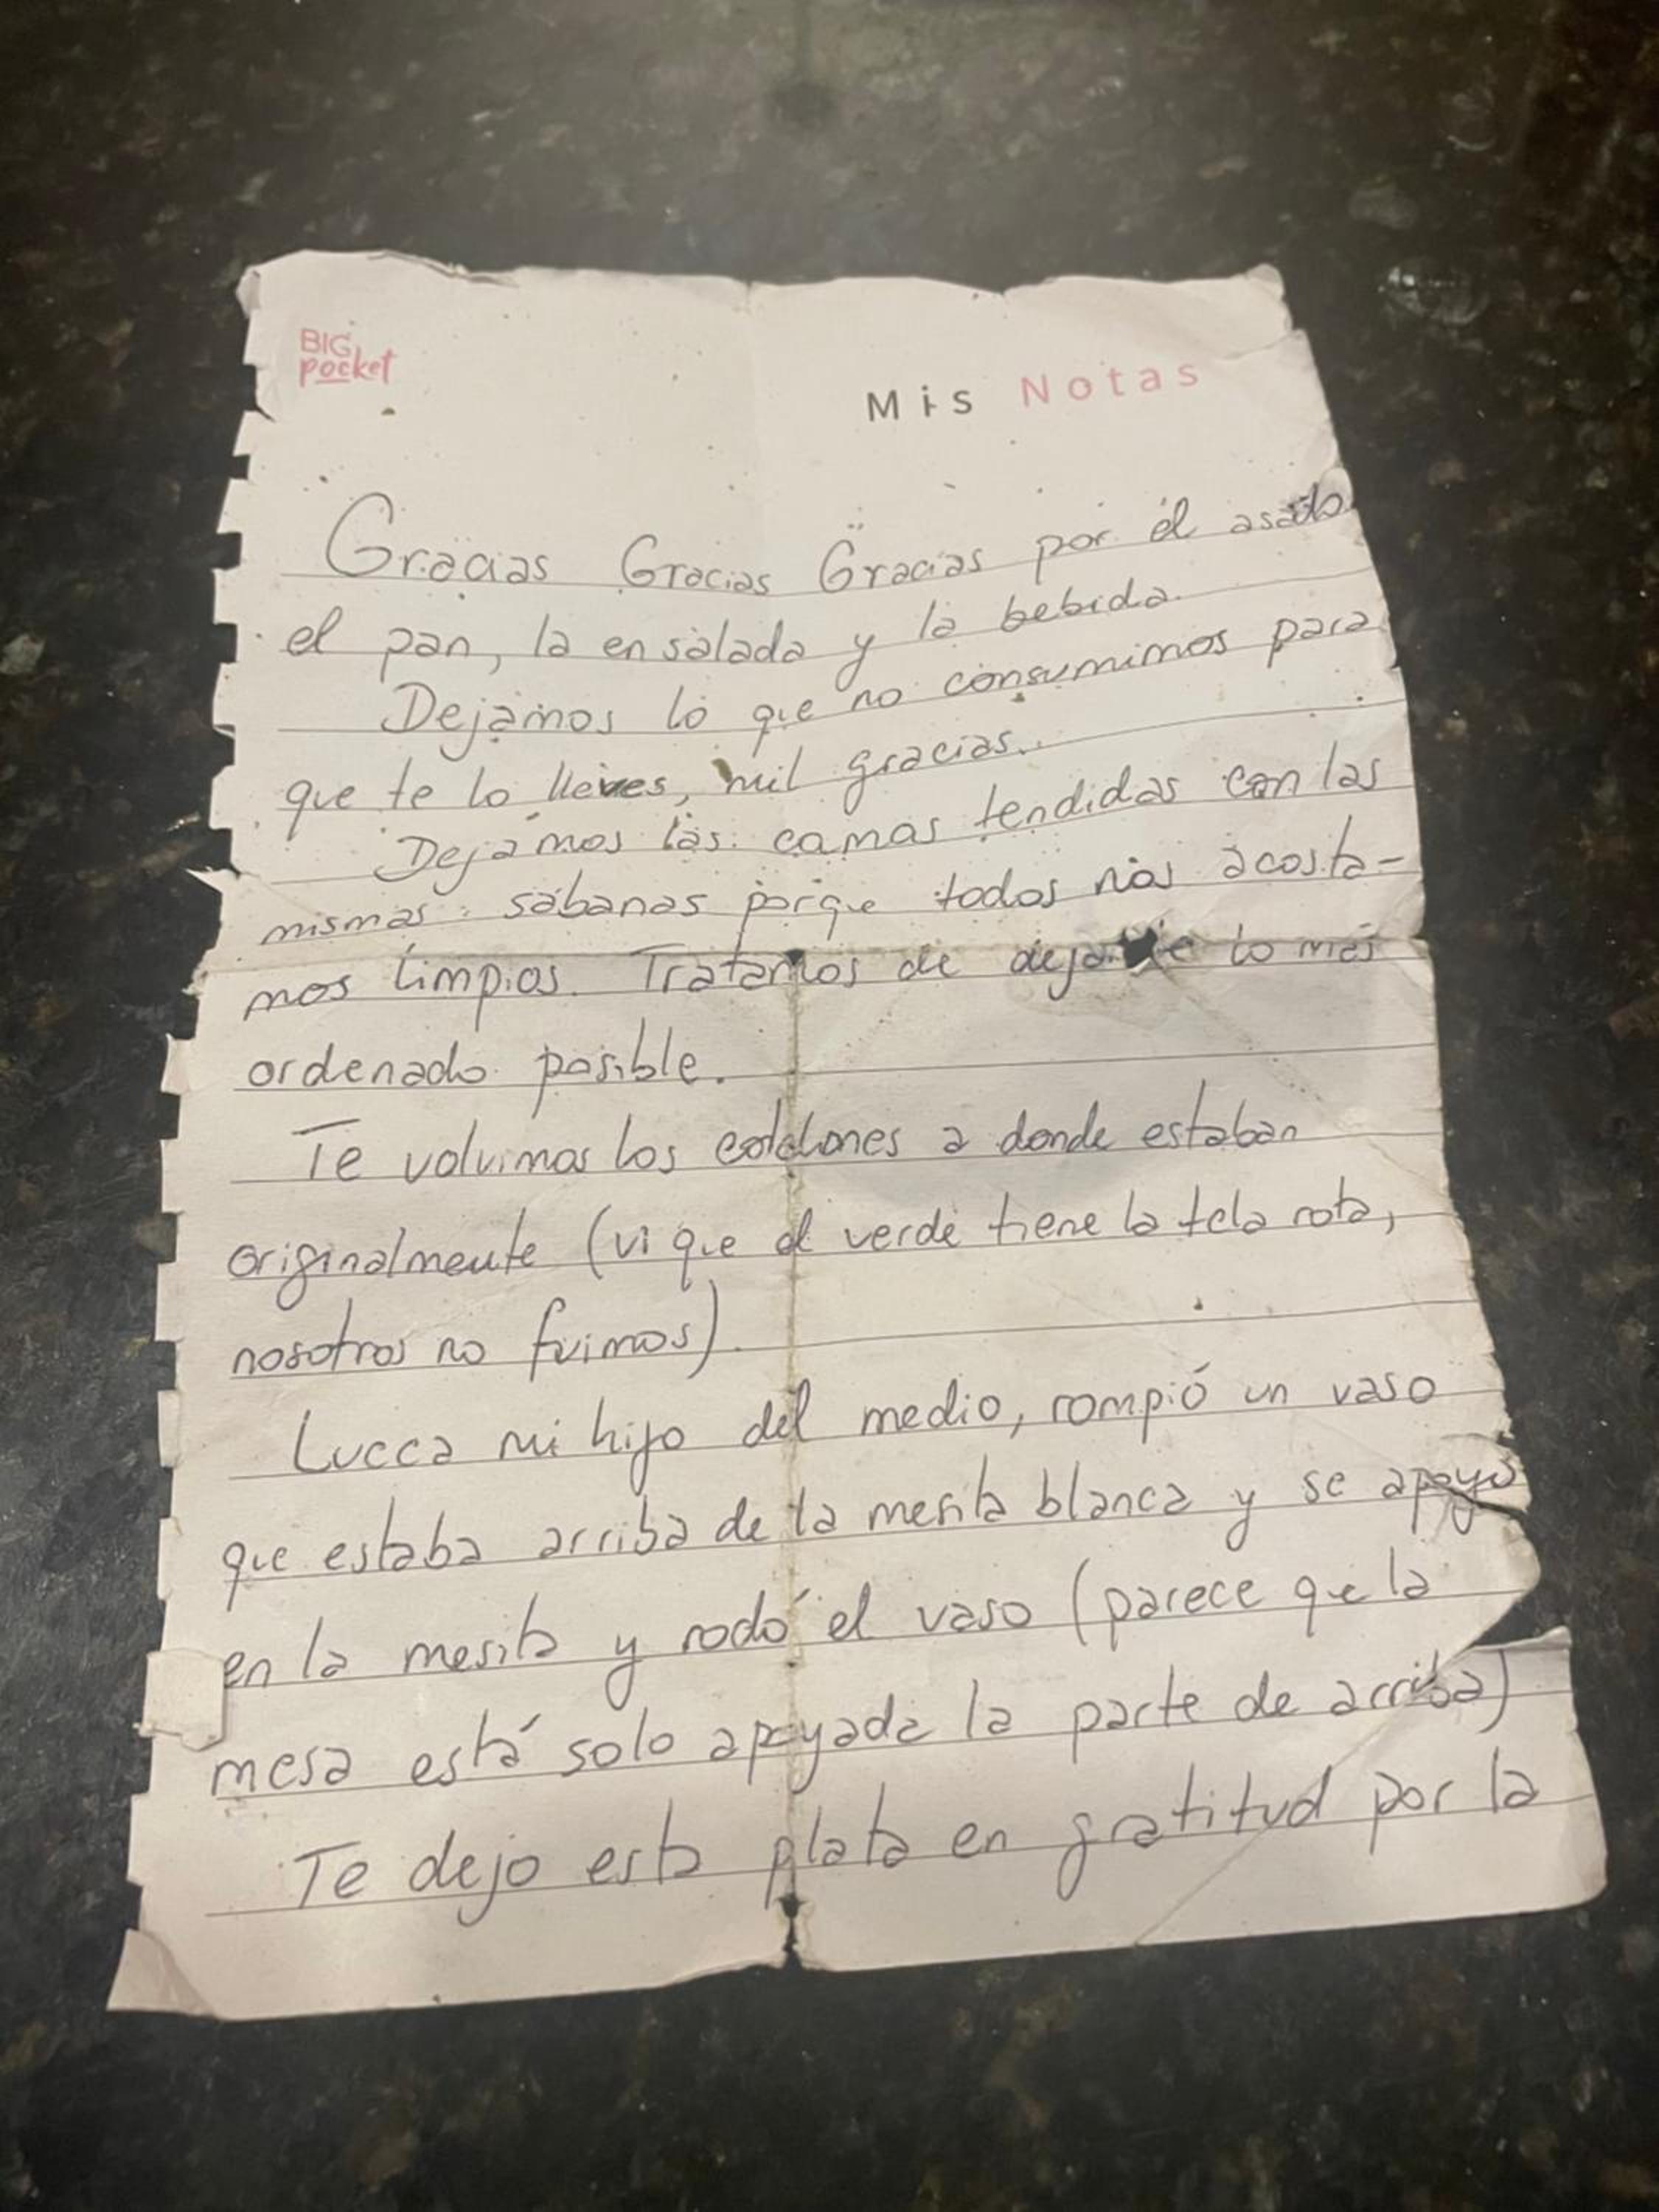 BIG
pocket
Mis Notas
Gracias Gracias Gracias por el asado
el pan, la ensalada y la bebida.
Dejamos lo que no consumimos para
que te lo lleves, mil gracias..
Dejamos las camas tendidas con las
mismas sábanas porque todos nos acosta-
mos limpios. Tratamos de dejarte lo más
ordenado posible.
Te volvimos los colchones a donde estaban
originalmente (vi que el verde tiene la tela rota,
nosotros no fuimos).
Lucca mi hijo del medio, rompió un vaso
que estaba arriba de la mesita blanca y se apoyó
en la mesita y rodó el vaso (parece que la
mesa está solo apoyada la parte de arriba)
Te dejo esta plata en gratitud por la